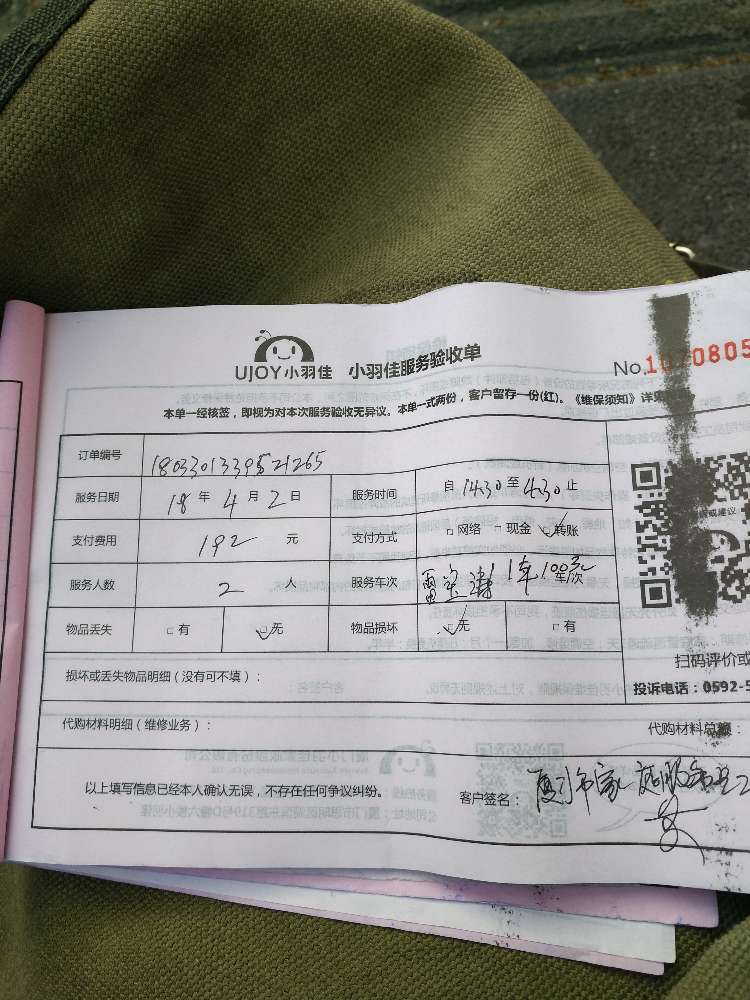 UJOY小羽佳 小羽佳服务验收单
No.1020805
本单一经核签，即视为对本次服务验收无异议。本单一式两份，客户留存一份(红)。《维保须知》详见
订单编号 1803301339521265
服务日期 18 年 4 月 2 日 服务时间 自 14:30 至 4:30 止
支付费用 192 元 支付方式 □网络 □现金 □转账
服务人数 2 人 服务车次 1车100元 车/次
物品丢失 □有 □无 物品损坏 □无 □有
扫码评价或
损坏或丢失物品明细（没有可不填）：
投诉电话：0592-5
代购材料明细（维修业务）： 代购材料总额：
以上填写信息已经本人确认无误，不存在任何争议纠纷。 客户签名： 厦门市家庭服务